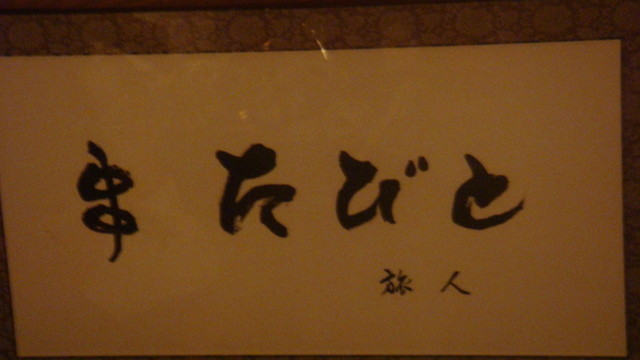 串たびと
旅人